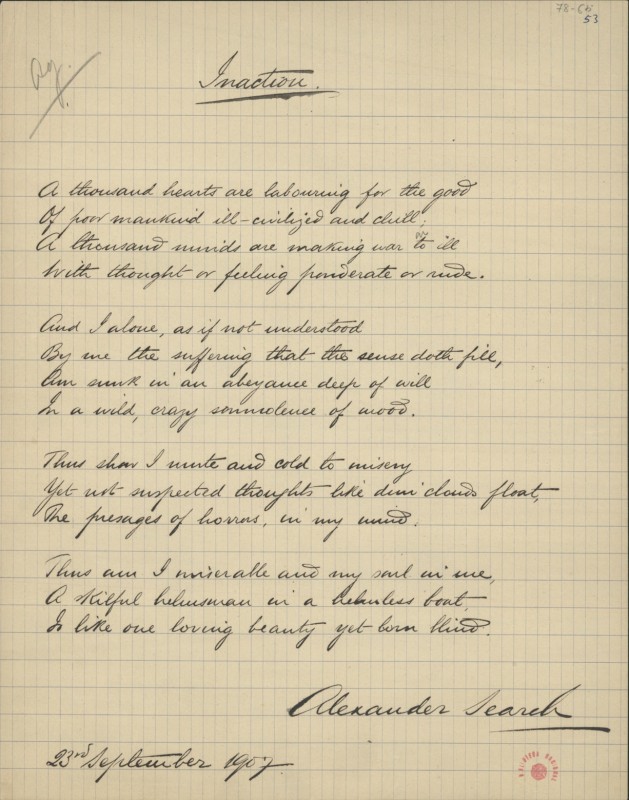 78-
53
ag.
Inaction.
A thousand hearts are labouring for the good
Of poor mankind ill-civilized and chill;
A thousand minds are making war to ill
on
With thought or feeling ponderate or rude.
And I alone, as if not understood
By me the suffering that the sense doth fill,
Am sunk in an abeyance deep of will
In a wild, crazy somnolence of mood.
Thus show I mute and cold to misery
Yet not suspected thoughts like dim clouds float,
The presages of horrors, in my mind.
Thus am I miserable and my soul in me,
A skilful helmsman in a helmless boat,
Is like one loving beauty yet born blind.
Alexander Search
23rd September 1907
BIBLIOTECA NACIONAL